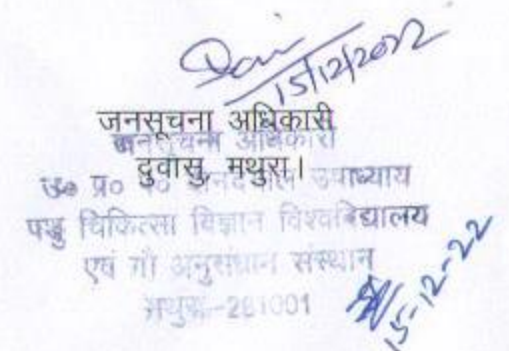 15/12/2022
जनसूचना अधिकारी
जनसूचना अधिकारी
दुवासु, मथुरा।
उ० प्र० उपाध्याय
पशु चिकित्सा विज्ञान विश्वविद्यालय
एवं गौ अनुसंधान संस्थान
मथुरा-281001
15-12-22